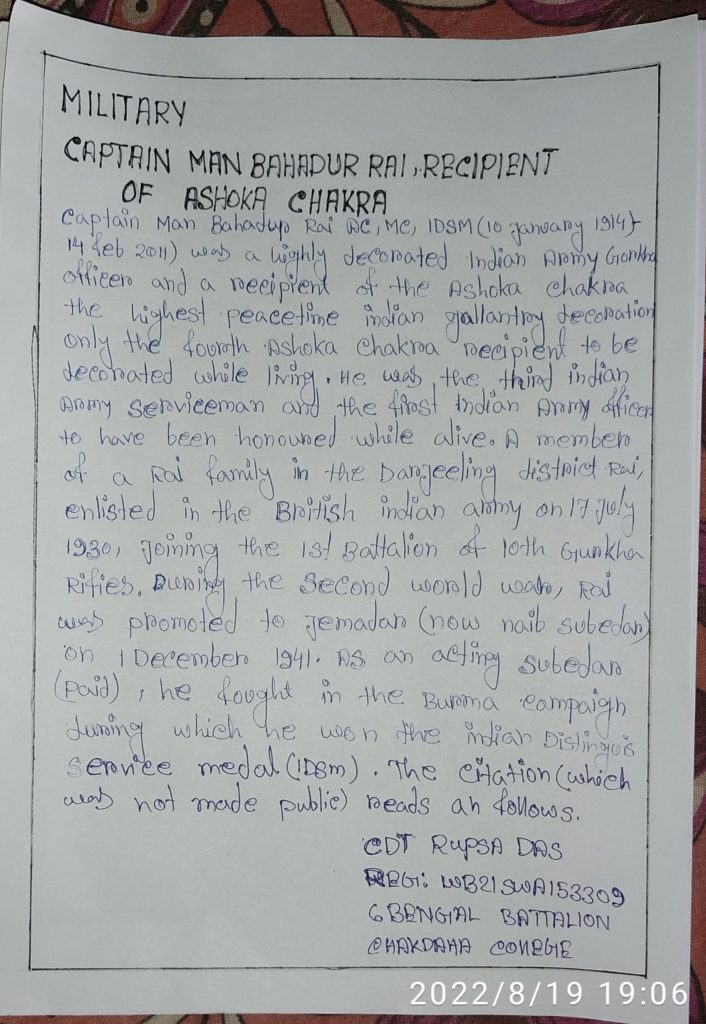 MILITARY
CAPTAIN MAN BAHADUR RAI, RECIPIENT
OF ASHOKA CHAKRA
Captain Man Bahadur Rai AC, MC, IDSM (10 January 1914 -
14 feb 2011) was a highly decorated Indian Army Gorkha
officer and a recipient of the Ashoka Chakra
the highest peacetime indian gallantry decoration
only the fourth Ashoka chakra recipient to be
decorated while living. He was the third indian
Army serviceman and the first Indian Army officer
to have been honoured while alive. A member
of a Rai family in the Darjeeling district Rai,
enlisted in the British indian army on 17 July
1930, joining the 1st Battalion of 10th Gurkha
Rifies. During the second world war, Rai
was promoted to jemadar (now naib subedar)
on 1 December 1941. As an acting subedar
(paid), he fought in the Burma campaign
during which he won the indian Distinguis
service medal (IDSM). The citation (which
was not made public) reads an follows.
CDT RUPSA DAS
REGI: WB21SWA153309
6 BENGIAL BATTALION
CHAKDAHA COLLEGIE
2022/8/19 19:06